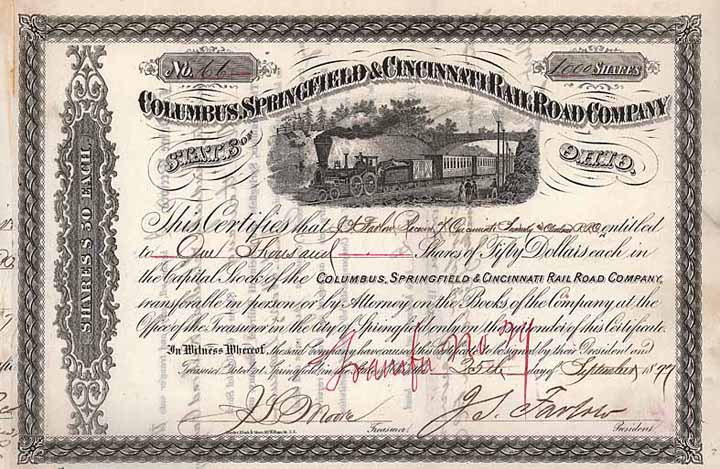 No. 66
1000 SHARES
COLUMBUS, SPRINGFIELD & CINCINNATI RAIL ROAD COMPANY
STATE OF OHIO.
SHARES $50 EACH.
This Certifies that J. S. Farlow Receiver of Cincinnati Sandusky & Cleveland R.R.Co. entitled
to One Thousand Shares of Fifty Dollars each in
the Capital Stock of the COLUMBUS, SPRINGFIELD & CINCINNATI RAIL ROAD COMPANY,
transferable in person or by Attorney on the Books of the Company at the
Office of the Treasurer in the City of Springfield only on the surrender of this Certificate.
In Witness Whereof, the said Company have caused this Certificate to be signed by their President and
Treasurer. Dated at Springfield in the 25th day of September 1877
J. L. Moore Treasurer.
J. S. Farlow President.